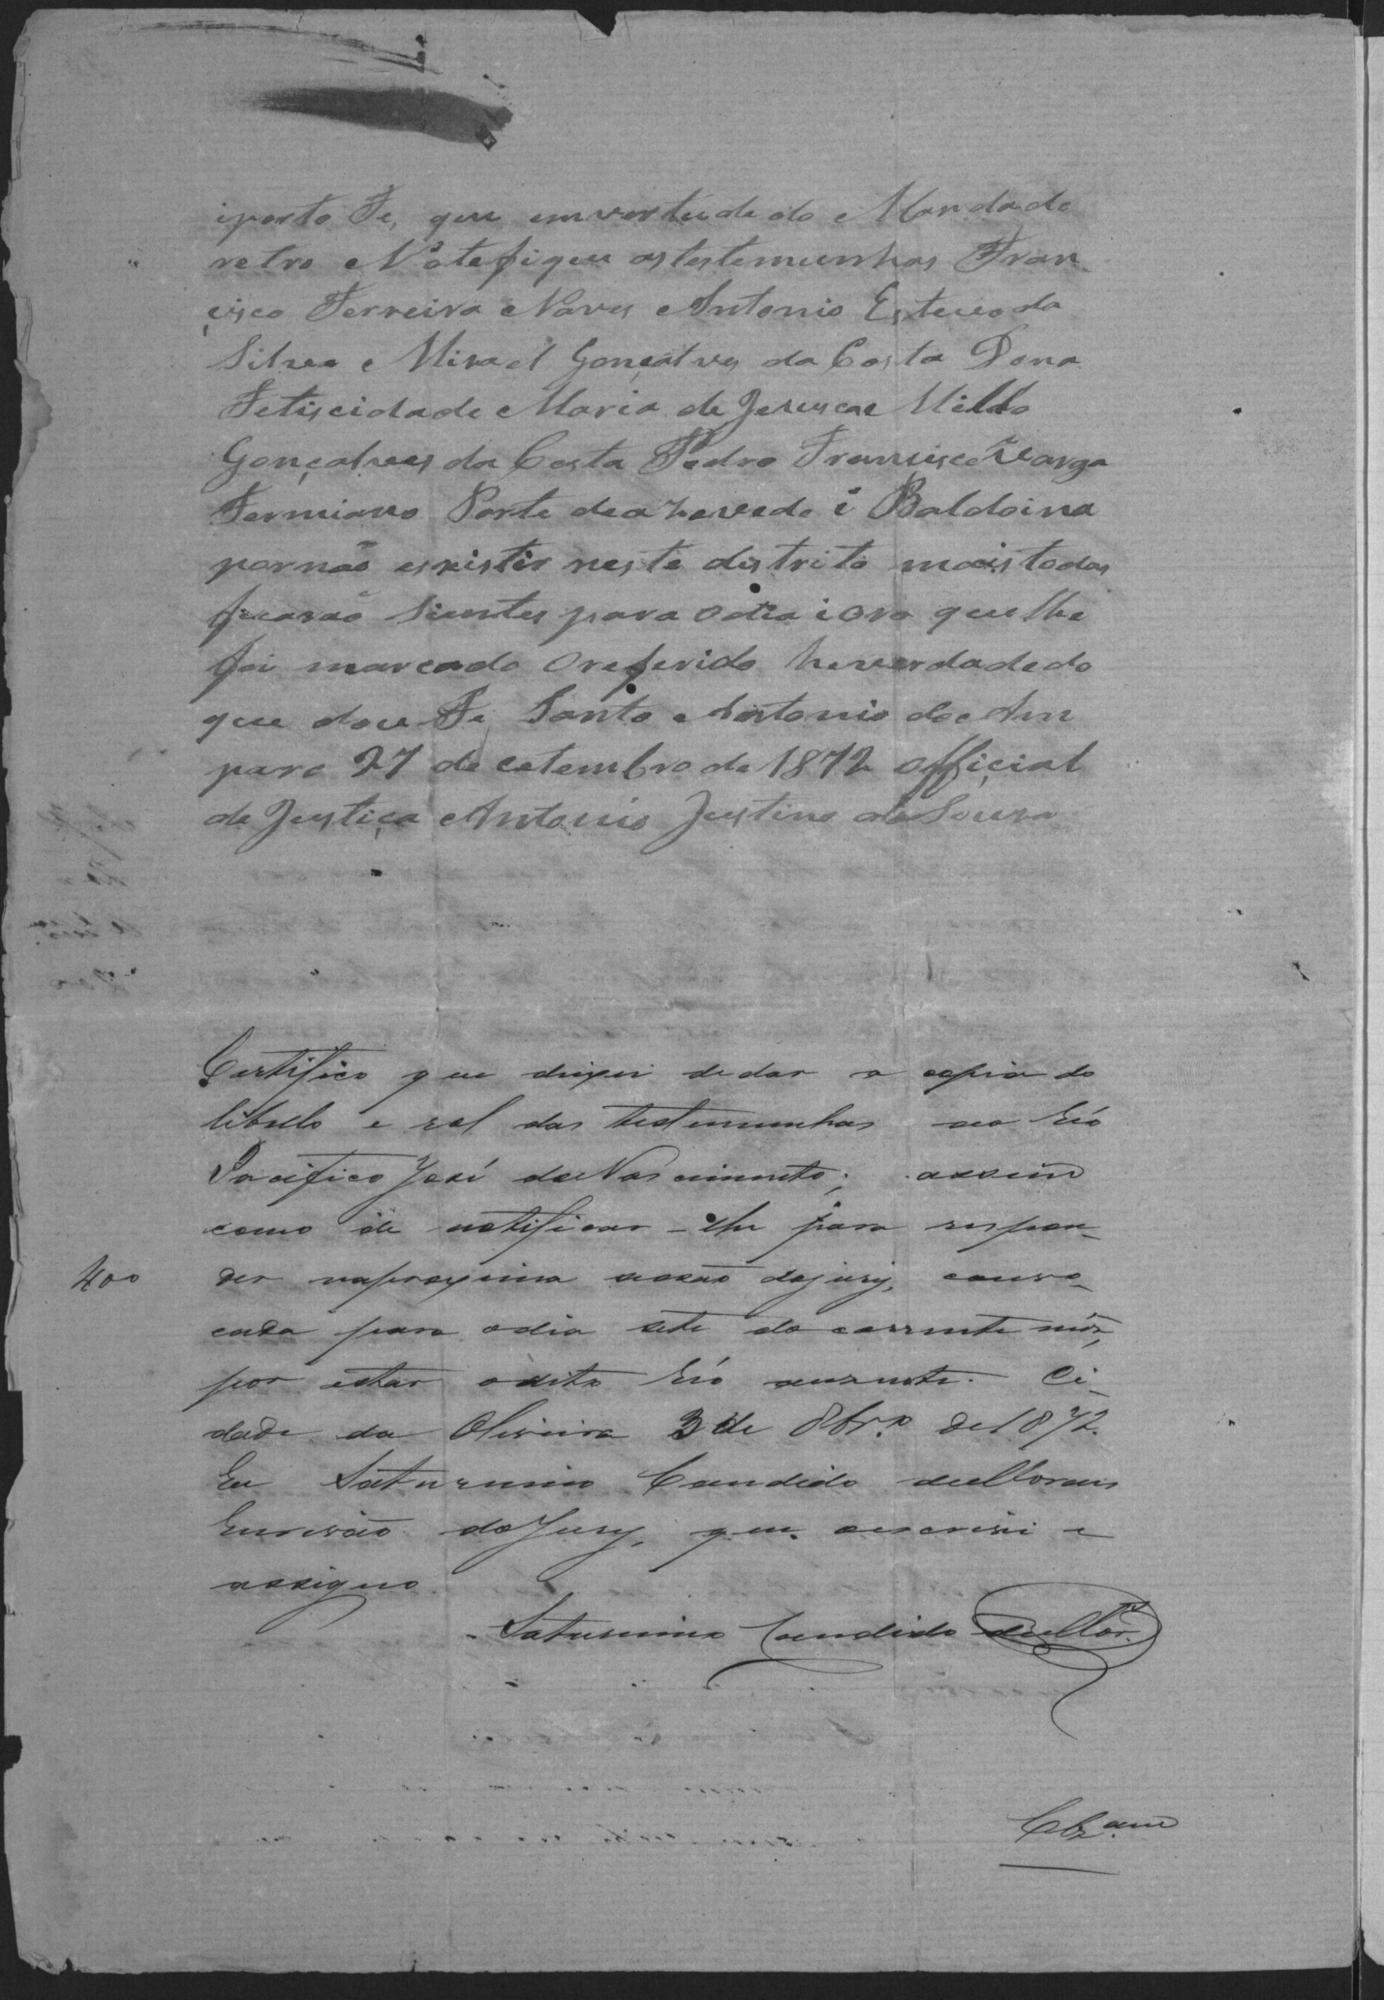 iporto Fe, que em vertude do Mandado
retro Notefiquei as testemunhas Fran-
çisco Ferreira Naves Antonio Esteves da
Silva e Misael Gonçalves da Costa Dona
Feliscidade Maria de Jesus e
Gonçalves da Costa Pedro Françisco Varga
Fermiano Porte de azevedo i Baldoina
por não existir neste distrito mais todas
ficarão sientes para o dia i ora que lhe
foi marcado O referido he verdade do
que dou Fe Santo Antonio do Am
paro 27 de cetembro de 1872 official
de Justiça Antonio Justino de Souza
Certifico que deixei de dar a copia do
libello e rol das testemunhas ao réo
Pacifico José do Nascimento; assim
como de notificar-lhe para respon-
400
der na proxima sessão do jury, convo-
cada para o dia sete do corrente mês,
por estar o dito réo ausente. Ci-
dade da Oliveira 3 de 8br.º de 1872.
Eu Saturnino Candido de Moraes
Escrivão do Jury, que escrevi e
assigno.
Saturnino Candido de Mor.